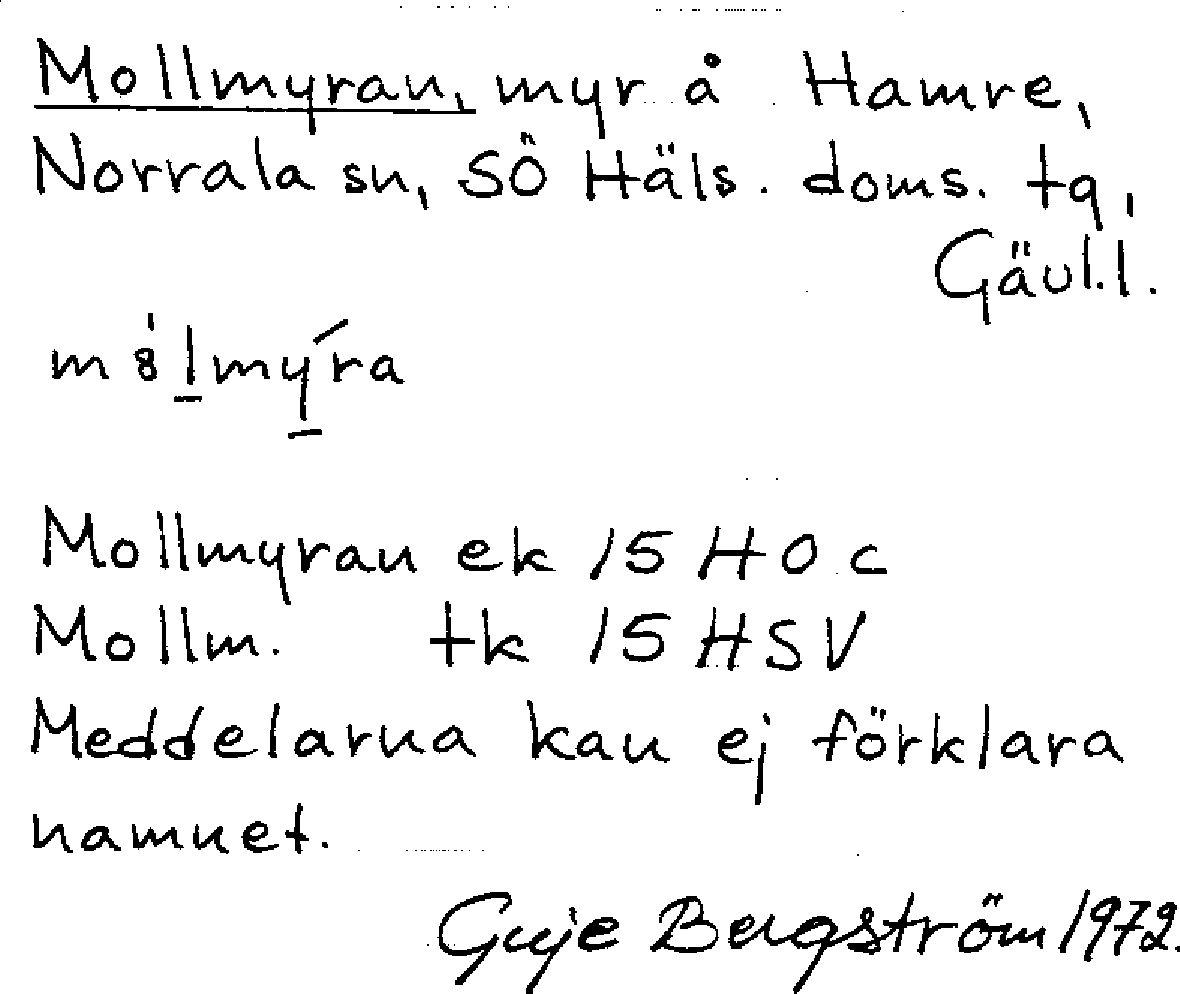 Mollmyran, myr å Hamre,
Norrala sn, SÖ Häls. doms. tg,
Gävl.l.
m8̍l̲mý̲ra
Mollmyran ek 15 H O c
Mollm. tk 15 H S V
Meddelarna kan ej förklara
namnet.
Guje Bergström 1972.